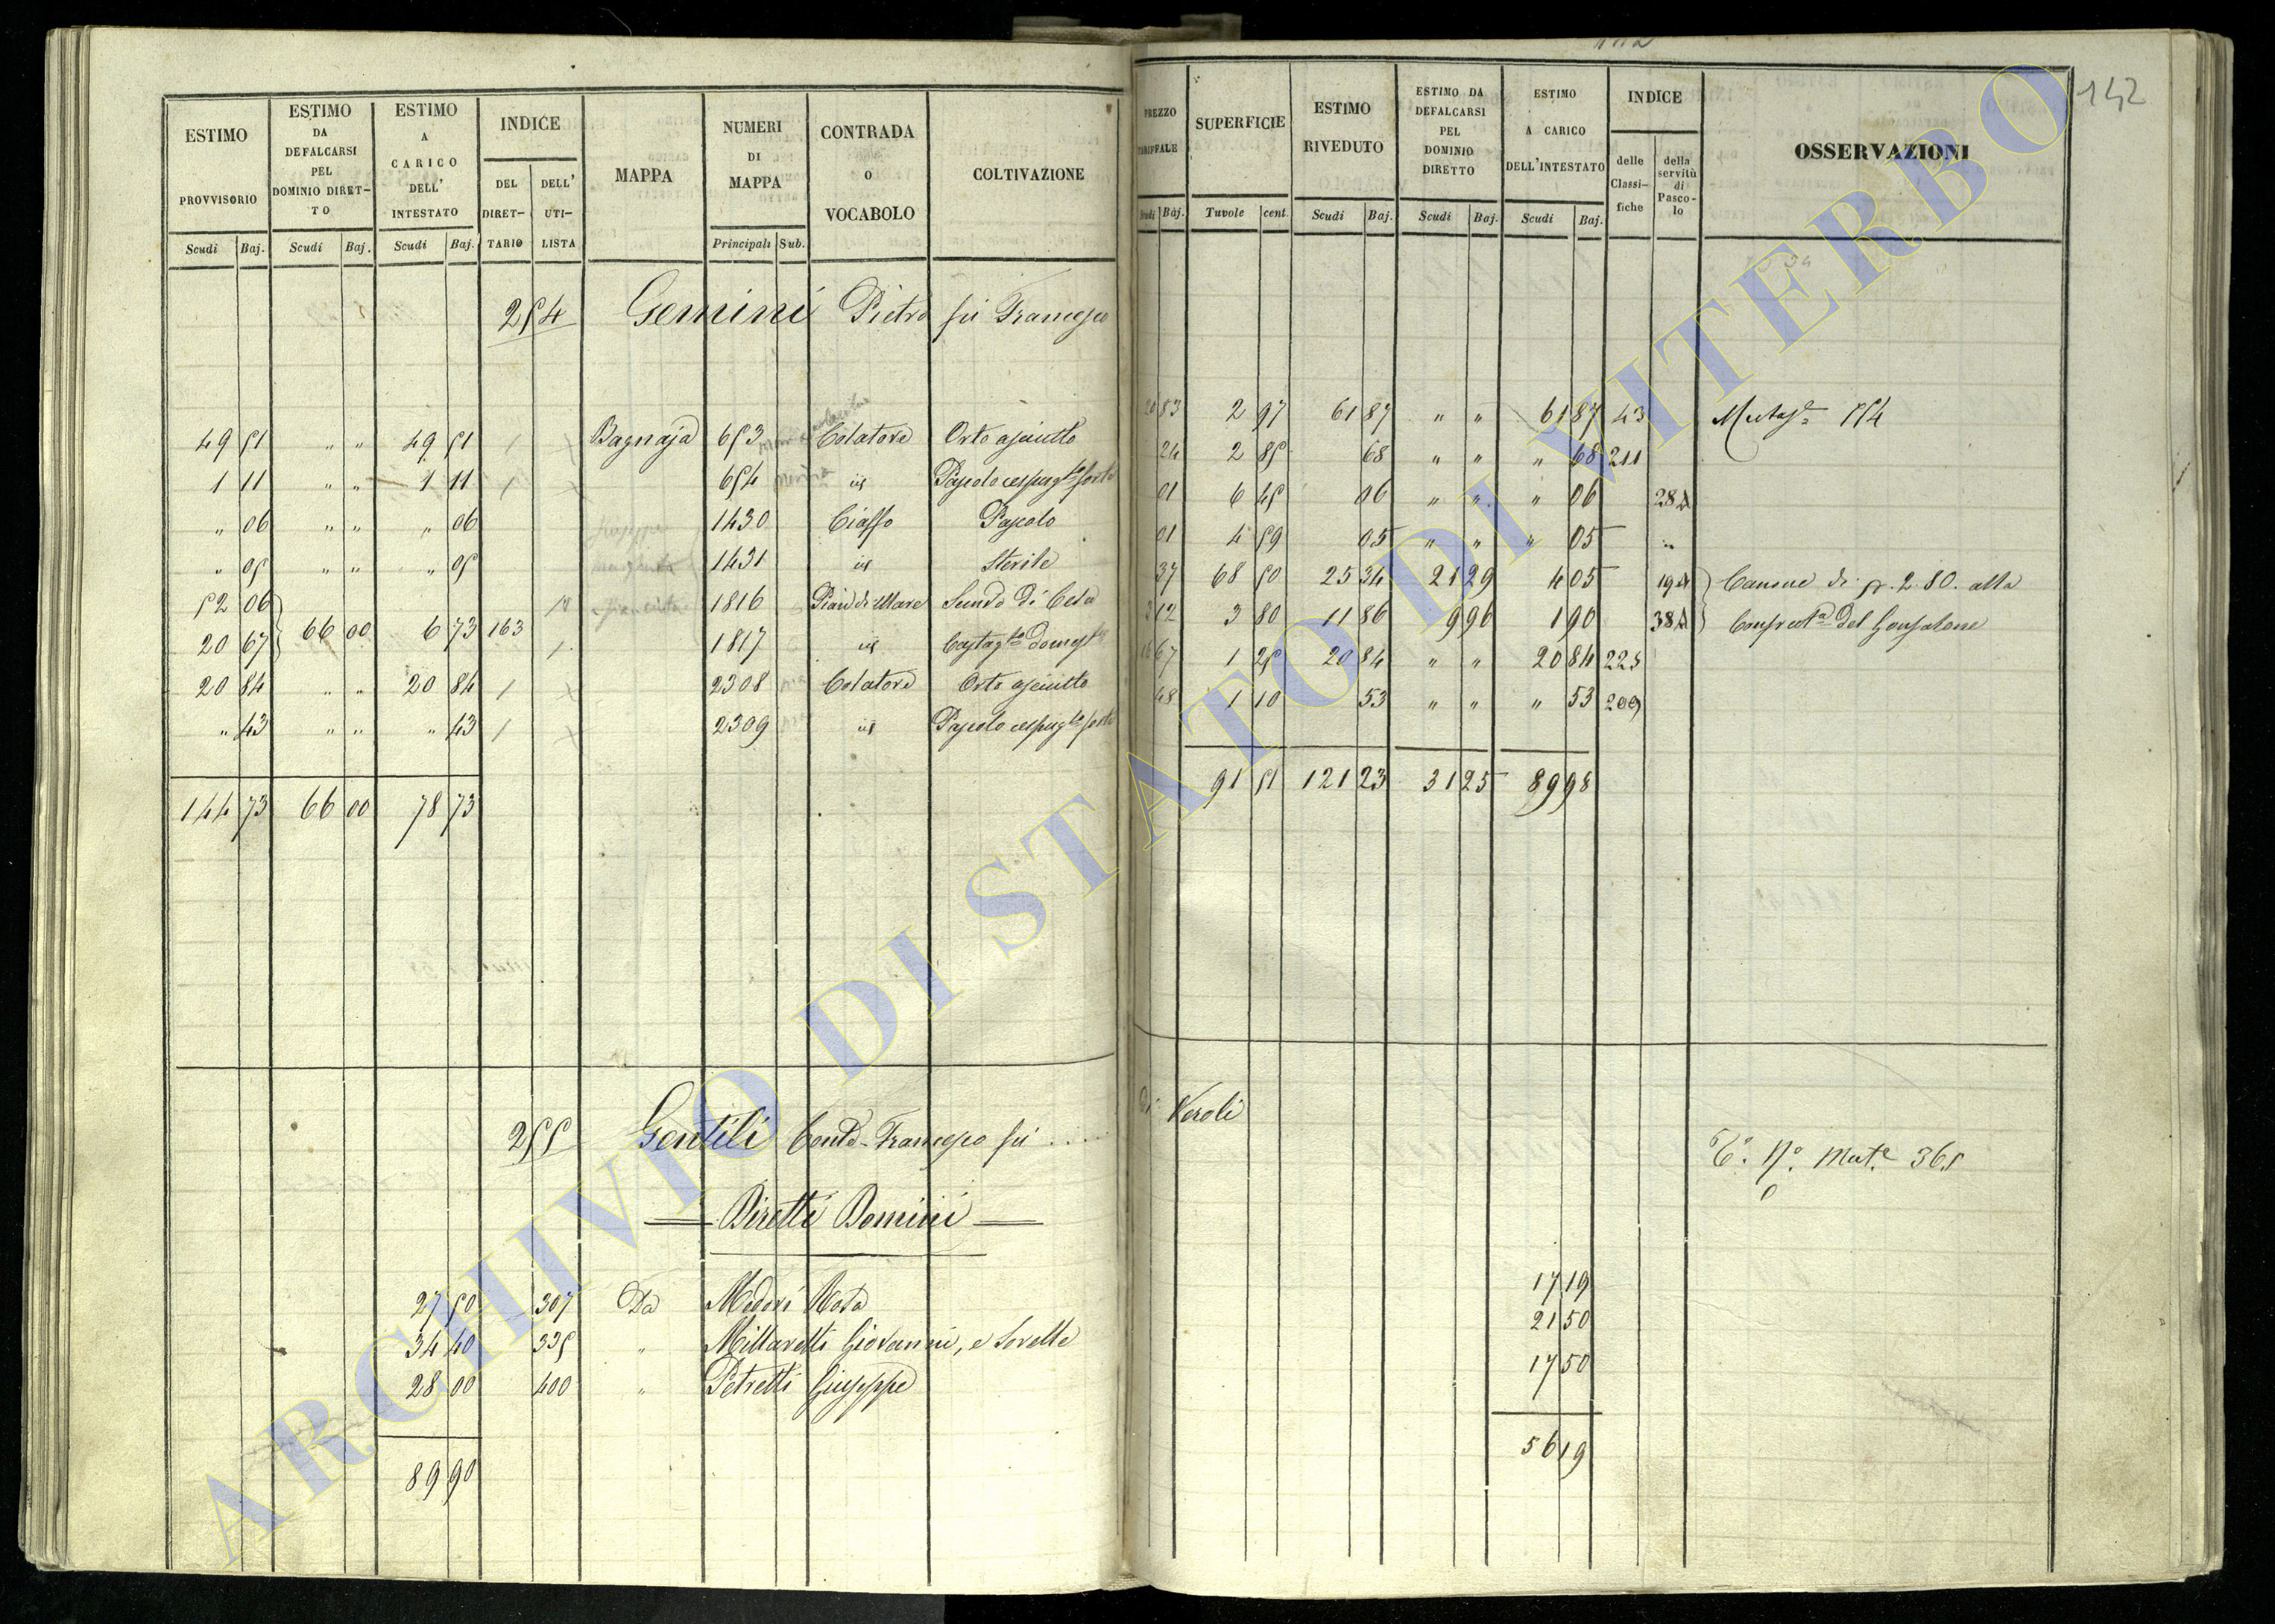 142
ESTIMO PROVVISORIO
ESTIMO DA DEFALCARSI PEL DOMINIO DIRETTO
ESTIMO A CARICO DELL' INTESTATO
INDICE
DEL DIRETTARIO
DELL' UTILISTA
MAPPA
NUMERI DI MAPPA
CONTRADA O VOCABOLO
COLTIVAZIONE
Scudi Baj. Scudi Baj. Scudi Baj. Principali Sub.
254 Gemini Pietro fù Francesco
49 51 " " 49 51 Bagnaja 653 Colatore Orto asciutto
1 11 " " 1 11 654 id Pascolo cespug.to forte
" 06 " " " 06 1430 Ciaffo Pascolo
" 05 " " " 05 1431 id Sterile
52 06 1816 Pian di Mare
20 67 66 00 6 73 163 1817 id Castag.to domest.
20 84 " " 20 84 2308 Colatore Orto asciutto
" 43 " " " 43 2309 id Pascolo cespug.to forte
144 73 66 00 78 73
255 Gentili Francesco fù .....
Diretti Dominii
27 50 307 Da Medori Rosa
34 40 335 " Millaretti Giovanni, e Sorelle
28 00 400 " Petretti Giuseppe
89 90
PREZZO TARIFFALE
SUPERFICIE
ESTIMO RIVEDUTO
ESTIMO DA DEFALCARSI PEL DOMINIO DIRETTO
ESTIMO A CARICO DELL'INTESTATO
INDICE
delle Classifiche
della servitù di Pascolo
OSSERVAZIONI
Scudi Baj. Tavole cent. Scudi Baj. Scudi Baj. Scudi Baj.
20 83 2 97 61 87 " " 61 87 43 554
24 2 85 68 " " " 68 211
01 6 45 06 " " " 06 28
01 4 59 05 " " " 05 "
37 68 50 25 34 21 29 4 05 19 Canone di 2.80. alla
3 12 3 80 11 86 9 96 1 90 38 Del Gonfalone
16 67 1 25 20 84 " " 20 84 225
48 1 10 53 " " " 53 209
91 51 121 23 31 25 89 98
di Veroli
Mut.e 365
17 19
21 50
17 50
56 19
ARCHIVIO DI STATO DI VITERBO